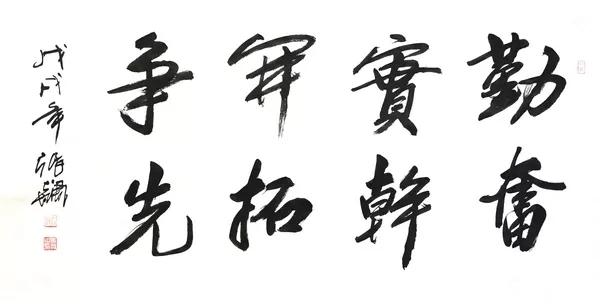 勤奮
實幹
開拓
争先
戊戌年